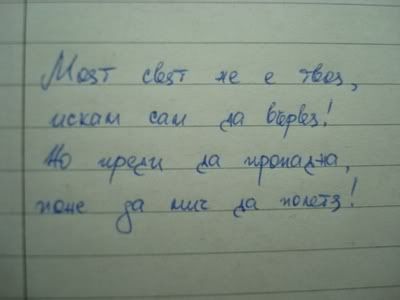 Моят свят не е твоя,
искам сам да вървя!
Но преди да пропадна,
поне за миг да полетя!